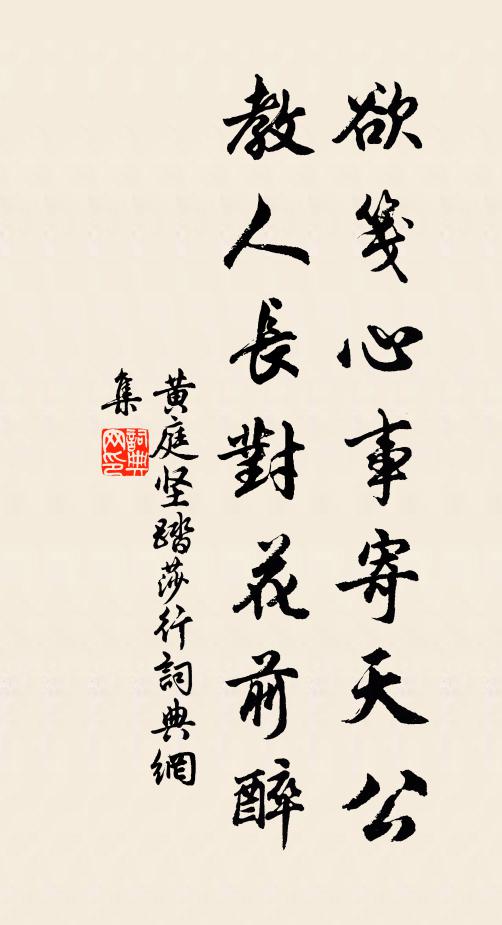 欲箋心事寄天公
教人長對花前醉
黄庭坚踏莎行詞典網
集
詞典網印